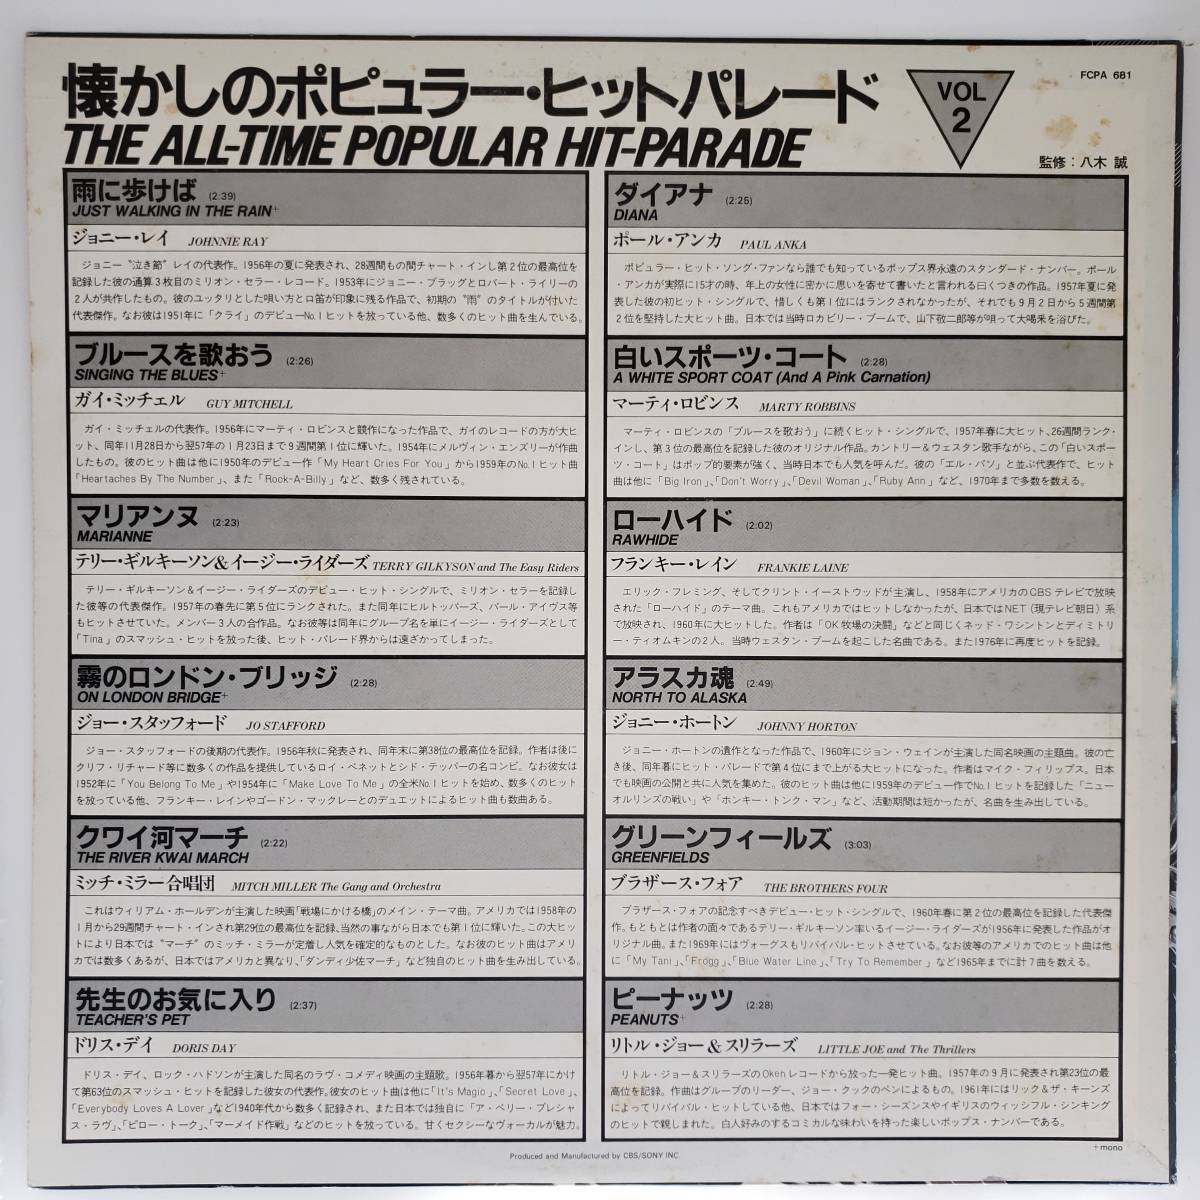 懐かしのポピュラー・ヒットパレード
THE ALL-TIME POPULAR HIT-PARADE
VOL
2
FCPA 681
監修：八木 誠
雨に歩けば (2:39)
JUST WALKING IN THE RAIN+
ジョニー・レイ JOHNNIE RAY
ジョニー〝泣き節〞レイの代表作。1956年の夏に発表され、28週間もの間チャート・インし第2位の最高位を
記録した彼の通算3枚目のミリオン・セラー・レコード。1953年にジョニー・ブラッグとロバート・ライリーの
2人が共作したもの。彼のユッタリとした唄い方と口笛が印象に残る作品で、初期の〝雨〞のタイトルが付いた
代表傑作。なお彼は1951年に「クライ」のデビューNo.1ヒットを放っている他、数多くのヒット曲を生んでいる。
ブルースを歌おう (2:26)
SINGING THE BLUES+
ガイ・ミッチェル GUY MITCHELL
ガイ・ミッチェルの代表作。1956年にマーティ・ロビンスと競作になった作品で、ガイのレコードの方が大ヒ
ット、同年11月28日から翌57年の1月23日まで9週間第1位に輝いた。1954年にメルヴィン・エンズリーが作曲
したもの。彼のヒット曲は他に1950年のデビュー作「My Heart Cries For You」から1959年のNo.1ヒット曲
「Heartaches By The Number」、また「Rock-A-Billy」など、数多く残されている。
マリアンヌ (2:23)
MARIANNE
テリー・ギルキーソン&イージー・ライダーズ TERRY GILKYSON and The Easy Riders
テリー・ギルキーソン&イージー・ライダーズのデビュー・ヒット・シングルで、ミリオン・セラーを記録し
た彼等の代表傑作。1957年の春先に第5位にランクされた。また同年にヒルトッパーズ、バール・アイヴス等
もヒットさせていた。メンバー3人の合作品。なお彼等は同年にグループ名を単にイージー・ライダーズとして
「Tina」のスマッシュ・ヒットを放った後、ヒット・パレード界からは遠ざかってしまった。
霧のロンドン・ブリッジ (2:28)
ON LONDON BRIDGE+
ジョー・スタッフォード JO STAFFORD
ジョー・スタッフォードの後期の代表作。1956年秋に発表され、同年末に第38位の最高位を記録。作者は後に
クリフ・リチャード等に数多くの作品を提供しているロイ・ベネットとシド・テッパーの名コンビ。なお彼女は
1952年に「You Belong To Me」や1954年に「Make Love To Me」の全米No.1ヒットを始め、数多くのヒット
を放っている他、フランキー・レインやゴードン・マックレーとのデュエットによるヒット曲も数曲ある。
クワイ河マーチ (2:22)
THE RIVER KWAI MARCH
ミッチ・ミラー合唱団 MITCH MILLER The Gang and Orchestra
これはウィリアム・ホールデンが主演した映画「戦場にかける橋」のメイン・テーマ曲。アメリカでは1958年の
1月から29週間チャート・インされ第29位の最高位を記録、当然の事ながら日本でも第1位に輝いた。この大ヒ
ットにより日本では〝マーチ〞のミッチ・ミラーが定着し人気を確定的なものとした。なお彼のヒット曲はアメリ
カでは数多くあるが、日本ではアメリカと異なり、「ダンディ少佐マーチ」など独自のヒット曲を生み出している。
先生のお気に入り (2:37)
TEACHER'S PET
ドリス・デイ DORIS DAY
ドリス・デイ、ロック・ハドソンが主演した同名のラヴ・コメディ映画の主題歌。1956年暮から翌57年にかけ
て第63位のスマッシュ・ヒットを記録した彼女の代表作。彼女のヒット曲は他に「It's Magic」、「Secret Love」、
「Everybody Loves A Lover」など1940年代から数多く記録され、また日本では独自に「ア・ベリー・プレシャ
ス・ラヴ」、「ピロー・トーク」、「マーメイド作戦」などのヒットを放っている。甘くセクシーなヴォーカルが魅力。
ダイアナ (2:25)
DIANA
ポール・アンカ PAUL ANKA
ポピュラー・ヒット・ソング・ファンなら誰でも知っているポップス界永遠のスタンダード・ナンバー。ポール
・アンカが実際に15才の時、年上の女性に密かに思いを寄せて書いたと言われる曰くつきの作品。1957年夏に発
表した彼の初ヒット・シングルで、惜しくも第1位にはランクされなかったが、それでも9月2日から5週間第
2位を堅持した大ヒット曲。日本では当時ロカビリー・ブームで、山下敬二郎等が唄って大喝釆を浴びた。
白いスポーツ・コート (2:28)
A WHITE SPORT COAT (And A Pink Carnation)
マーティ・ロビンス MARTY ROBBINS
マーティ・ロビンスの「ブルースを歌おう」に続くヒット・シングルで、1957年春に大ヒット、26週間ランク・
インし、第3位の最高位を記録した彼のオリジナル作品。カントリー&ウェスタン歌手ながら、この「白いスポー
ツ・コート」はポップ的要素が強く、当時日本でも人気を呼んだ。彼の「エル・パソ」と並ぶ代表作で、ヒット
曲は他に「Big Iron」、「Don't Worry」、「Devil Woman」、「Ruby Ann」など、1970年まで多数を数える。
ローハイド (2:02)
RAWHIDE
フランキー・レイン FRANKIE LAINE
エリック・フレミング、そしてクリント・イーストウッドが主演し、1958年にアメリカのCBSテレビで放映
された「ローハイド」のテーマ曲。これもアメリカではヒットしなかったが、日本ではNET(現テレビ朝日)系
で放映され、1960年に大ヒットした。作者は「OK牧場の決闘」などと同じくネッド・ワシントンとディミトリ
ー・ティオムキンの2人。当時ウェスタン・ブームを起こした名曲である。また1976年に再度ヒットを記録。
アラスカ魂 (2:49)
NORTH TO ALASKA
ジョニー・ホートン JOHNNY HORTON
ジョニー・ホートンの遺作となった作品で、1960年にジョン・ウェインが主演した同名映画の主題曲。彼の亡
き後、同年暮にヒット・パレードで第4位にまで上がる大ヒットになった。作者はマイク・フィリップス。日本
でも映画の公開と共に人気を集めた。彼のヒット曲は他に1959年のデビュー作でNo.1ヒットを記録した「ニュー
オルリンズの戦い」や「ホンキー・トンク・マン」など、活動期間は短かったが、名曲を生み出している。
グリーンフィールズ (3:03)
GREENFIELDS
ブラザース・フォア THE BROTHERS FOUR
ブラザース・フォアの記念すべきデビュー・ヒット・シングルで、1960年春に第2位の最高位を記録した代表傑
作。もともとは作者の面々であるテリー・ギルキーソン率いるイージー・ライダーズが1956年に発表した作品がオ
リジナル曲。また1969年にはヴォーグスもリバイバル・ヒットさせている。なお彼等のアメリカでのヒット曲は他
に「My Tani」、「Frogg」、「Blue Water Line」、「Try To Remember」など1965年までに計7曲を数える。
ピーナッツ (2:28)
PEANUTS+
リトル・ジョー&スリラーズ LITTLE JOE and The Thrillers
リトル・ジョー&スリラーズのOkehレコードから放った一発ヒット曲。1957年の9月に発表され第23位の最
高位を記録。作曲はグループのリーダー、ジョー・クックのペンによるもの。1961年にはリック&ザ・キーンズ
によってリバイバル・ヒットしている他、日本ではフォー・シーズンスやイギリスのウィッシフル・シンキング
のヒットで親しまれた。白人好みのするコミカルな味わいを持った楽しいポップス・ナンバーである。
+mono
Produced and Manufactured by CBS/SONY INC.